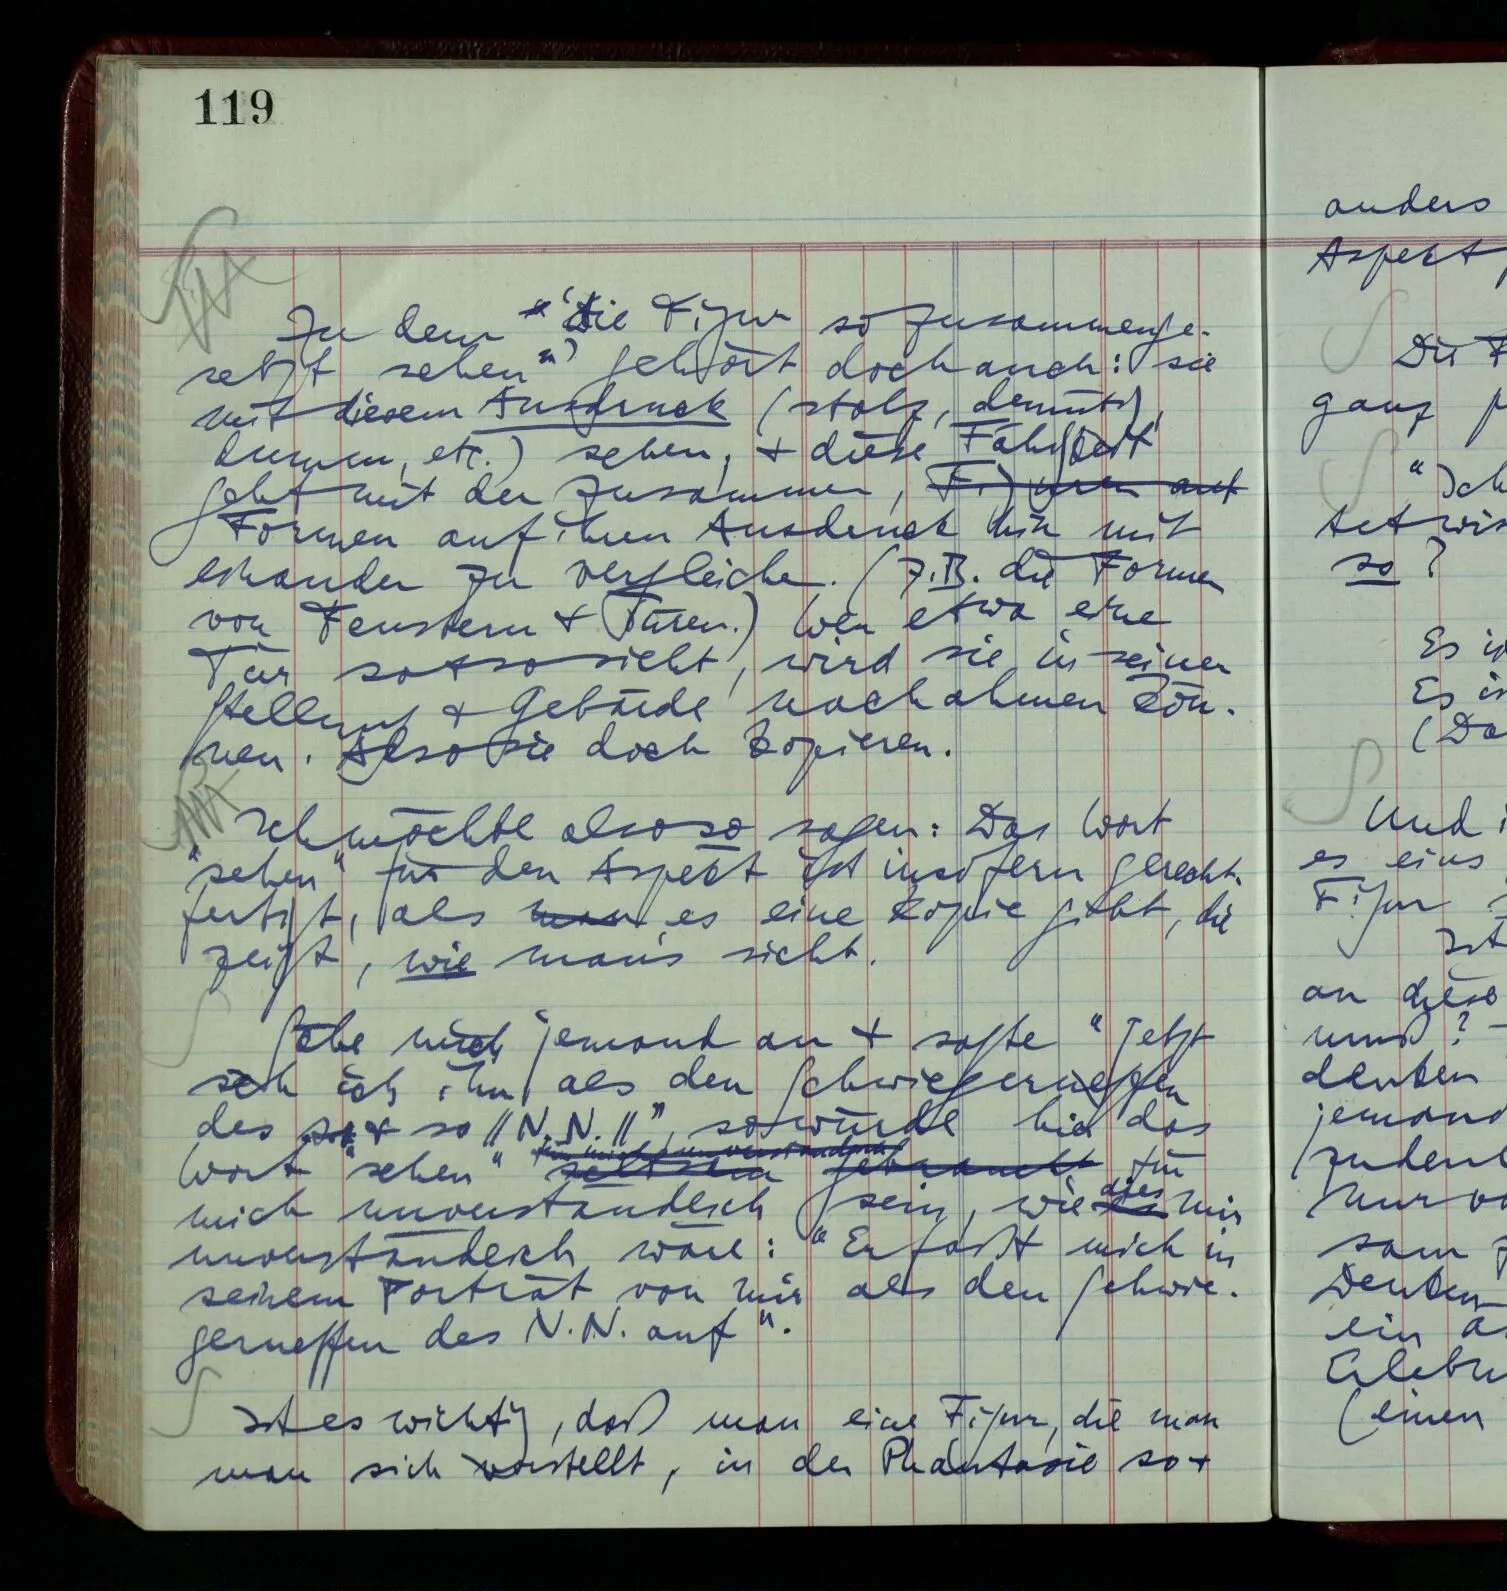 119
Zu dem "'die Figur so zusammenge-
setzt sehen'" gehört doch auch: sie
mit diesem Ausdruck (stolz, demütig,
dumm, etc.) sehen; + diese Fähigkeit
geht mit der zusammen, Figuren auf
Formen auf ihren Ausdruck hin mit
einander zu vergleichen. (Z.B. die Formen
von Fenstern + Türen.) Wer etwa eine
Tür so+so sieht, wird sie in seiner
Stellung + Gebärde nachahmen kön-
nen. Also sie doch kopieren.
Ich möchte also so sagen: Das Wort
"sehen" für den Aspekt ist insofern gerecht-
fertigt, als man es eine Kopie gibt, die
zeigt, wie man's sieht.
Sähe mich jemand an + sagte "Jetzt
seh ich ihn als den Schwiegerneffen
des so + so //N.N.//", so würde hier das
für mich unverständlich
Wort "sehen" seltsam gebraucht für
dies
mich unverständlich sein, wie es mir
unverständlich wäre: "Er faßt mich in
seinem Porträt von mir als den Schwie-
gerneffen des N.N. auf".
Ist es wichtig, daß man eine Figur, die man
man sich vorstellt, in der Phantasie so +
anders
Aspekt
Die F
ganz
"Ich
tet wis
so?
Es i
Es is
(Da
Und i
es eins
Figur
Ist
an diese
muß? –
deuten
jemand
zudeu
nur vo
sam
Deuten
ein
Erlebn
(einen